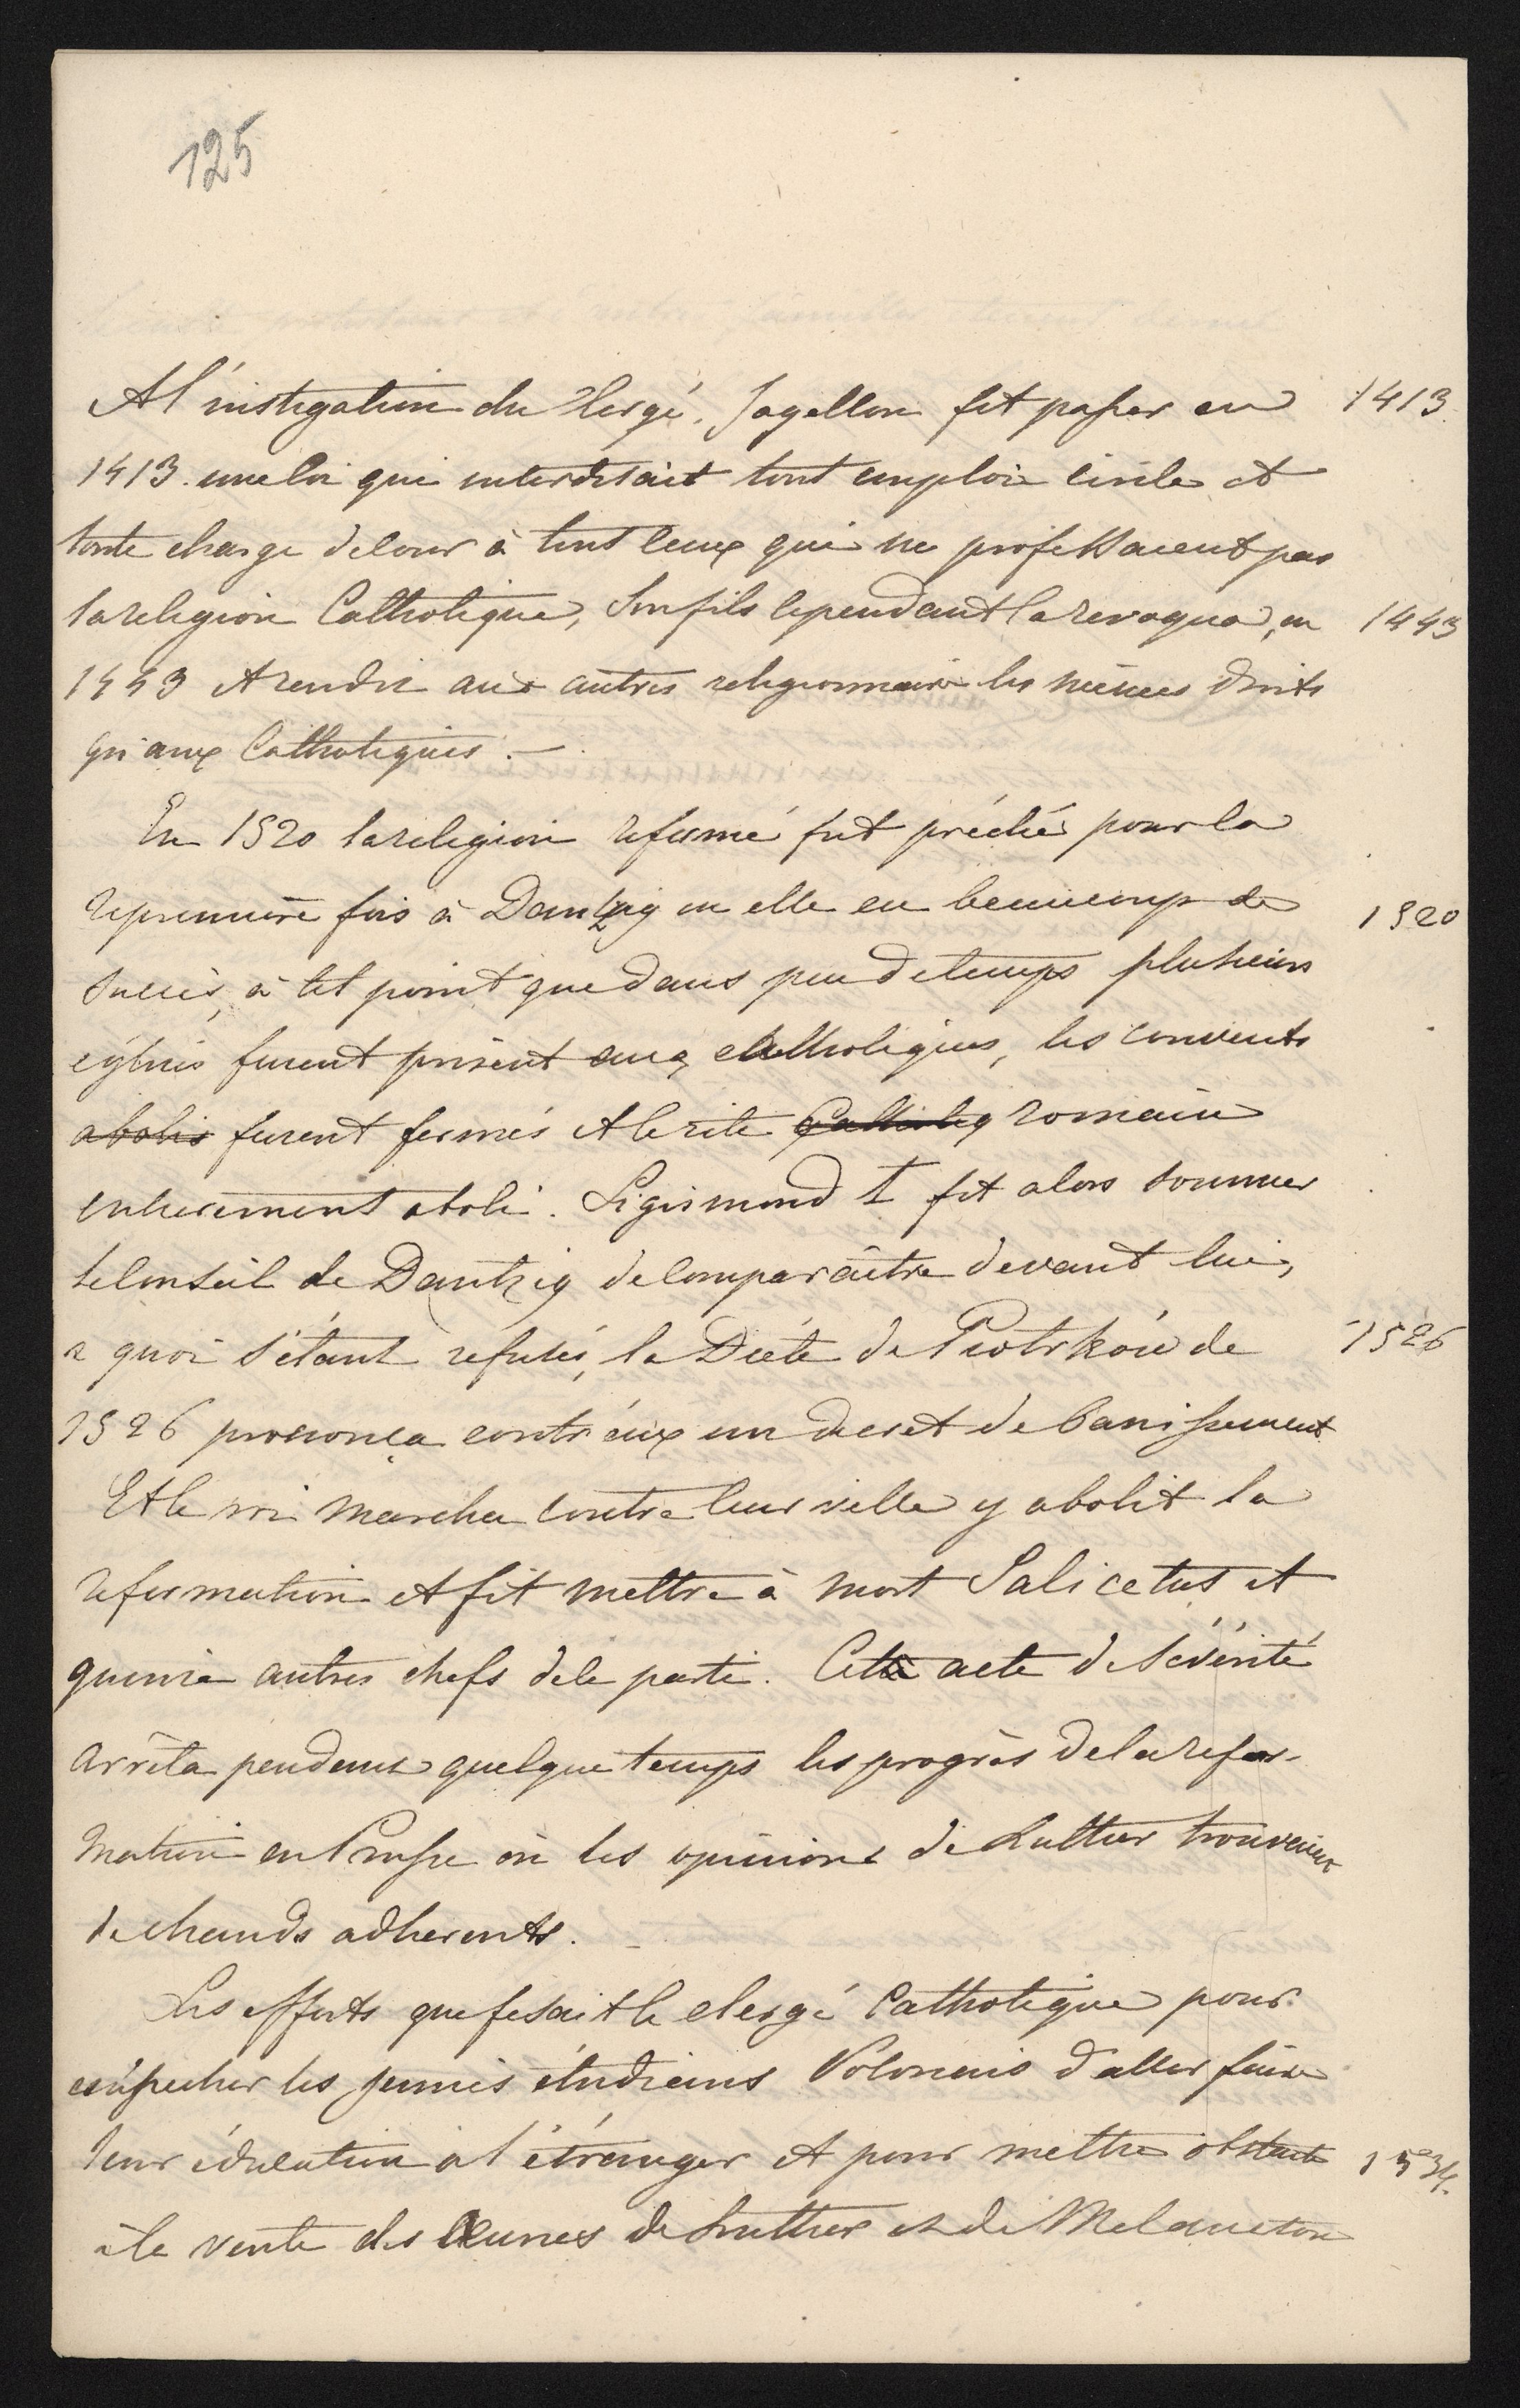 125
A l'instigation du Clergé, Jagellon fit passer en 1413.
1413. une loi qui interdisait tout emploie civile et
toute charge de cour à tout ceux qui ne professaient pas
la religion Catholique, Son fils cependant la revoqua, en 1443
1443 et rendit aux autres religionnaire les mêmes droits
qu'aux Catholiques. —
En 1520 la religion reformé fut préché pour la
première fois à Dantzig ou elle eu beaucoup de 1520
succès, à tel point que dans peu de temps plusieurs
églises furent prisent aux Catholiques, les couvents
abolis furent fermés et le rite Catholiq romain
entierement aboli. Sigismond I fit alors sommer
le Conseil de Dantzig de comparaître devant lui,
a quoi s'étant refusés, la Diète de Piotrków de 1526
1526 prononça contr'eux un decret de banissement
Et le roi marcha contre leur ville y abolit la
reformation et fit mettre à mort Salicetus et
quinze autres chefs de le parti. Cette acte de sévérité
arrêta pendant quelque temps les progrès de la refor-
mation en Prusse où les opinions de Luther trouvaient
de chauds adherents. —
Les efforts que fesait le clergé Catholique pour
empecher les jeunes étudians Polonais d'aller faire
leur éducation à l'étranger et pour mettre obstacle 1534.
à la vente des Œuvres de Luther et de Melancton